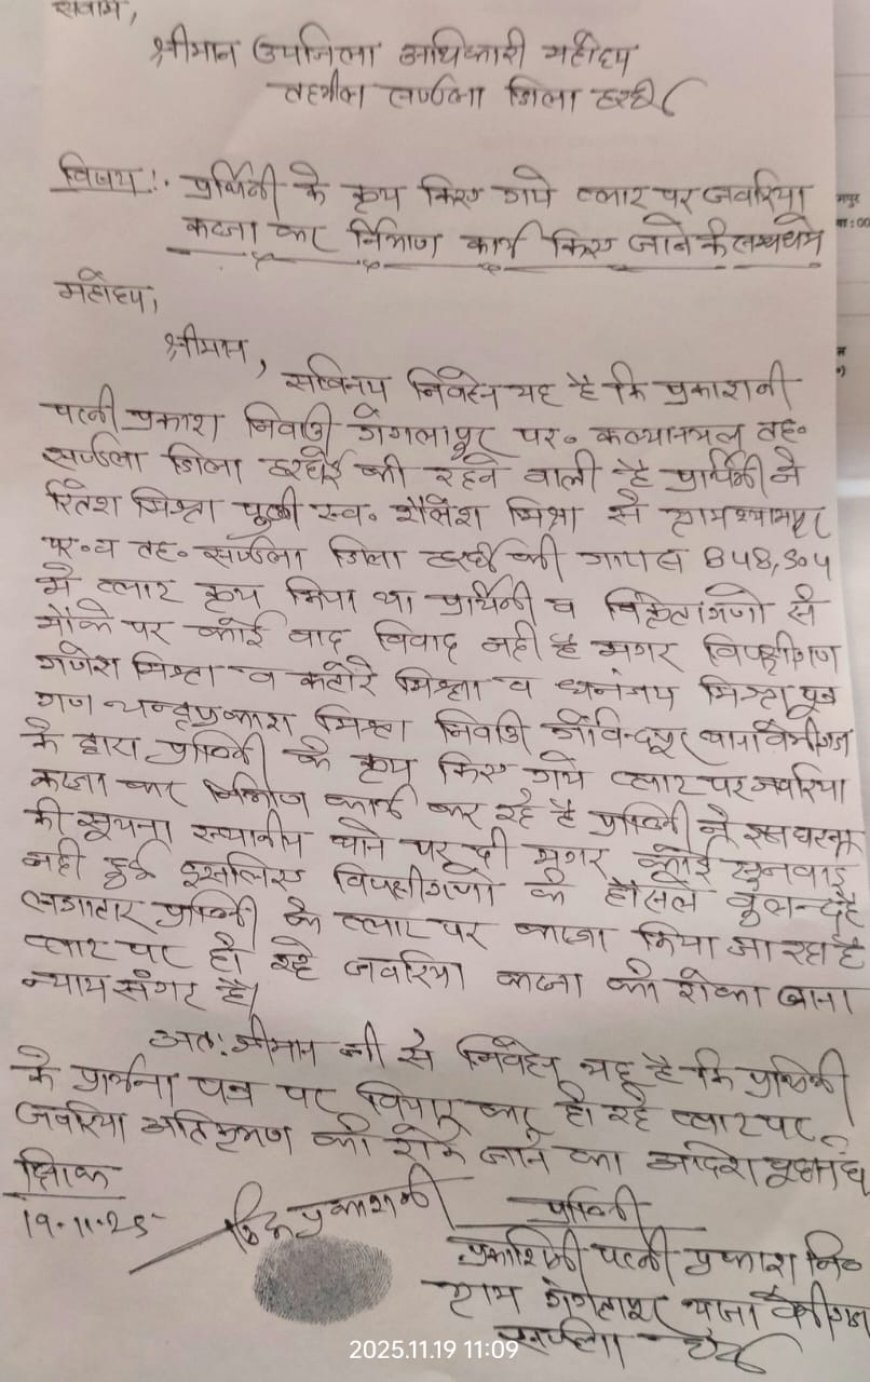 सेवामें,
श्रीमान उपजिला अधिकारी महोदय
तहसील सण्डीला जिला हरदोई
विषय:- प्रार्थिनी के क्रय किए गये प्लाट पर जबरिया
कब्जा कर निर्माण कार्य किए जाने के सम्बन्ध मे
महोदय,
श्रीमान,
सविनय निवेदन यह है कि प्रकाशनी
पत्नी प्रकाश निवासी गंगलापुर पर० कल्यानमल तह०
सण्डीला जिला हरदोई की रहने वाली है प्रार्थिनी ने
रितेश मिश्रा पुत्री स्व० शैलेश मिश्रा से ग्राम श्यामपुर
पर० व तह० सण्डीला जिला हरदोई की गाटा सं 848, 304
मे प्लाट क्रय किया था प्रार्थिनी व विक्रेतागणो से
मौके पर कोई वाद विवाद नही है मगर विपक्षीगण
गणेश मिश्रा व कटोरे मिश्रा व धनंजय मिश्रा पुत्र
गण चन्द्रप्रकाश मिश्रा निवासी गोविन्दपुर थाना बेनीगंज
के द्वारा प्रार्थिनी के क्रय किए गये प्लाट पर जबरिया
कब्जा कर निर्माण कार्य कर रहे है प्रार्थिनी ने इस घटना
की सूचना स्थानीय थाने पर दी मगर कोई सुनवाई
नही हुई इसलिए विपक्षीगणो के हौसले बुलन्द है
लगातार प्रार्थिनी के प्लाट पर कब्जा किया जा रहा है
प्लाट पर हो रहे जबरिया कब्जा को रोका जाना
न्याय संगत है।
अतः श्रीमान जी से निवेदन यह है कि प्रार्थिनी
के प्रार्थना पत्र पर विचार कर हो रहे प्लाट पर
जबरिया अतिक्रमण को रोके जाने का आदेश
दिनांक
19.11.25
प्रकाशनी
प्रार्थिनी
प्रकाशिनी पत्नी प्रकाश नि०
ग्राम गंगलापुर थाना बेनीगंज
सण्डीला
2025.11.19 11:09